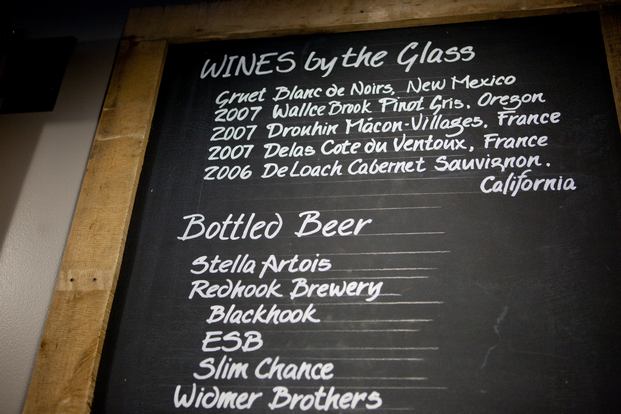 WINES by the Glass
Gruet Blanc de Noirs, New Mexico
2007 Wallce Brook Pinot Gris, Oregon
2007 Drouhin Mácon-Villages, France
2007 Delas Cote du Ventoux, France
2006 DeLoach Cabernet Sauvignon,
California
Bottled Beer
Stella Artois
Redhook Brewery
Blackhook
ESB
Slim Chance
Widmer Brothers